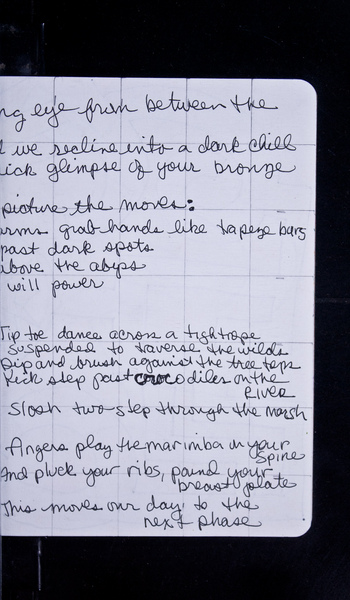 ng eye from between the
l we recline into a dark chill
ick glimpse of your bronze
picture the moves:
arms grab hands like trapeze bars
past dark spots
above the abyss
will power
Tip toe dance across a tightrope
suspended to traverse the wilds
Dip and brush against the tree tops
Kick step past crocodiles on the
River
Slosh two-step through the marsh
Fingers play the marimba in your
Spine
And pluck your ribs, pound your
breast plate
This moves our day to the
next phase